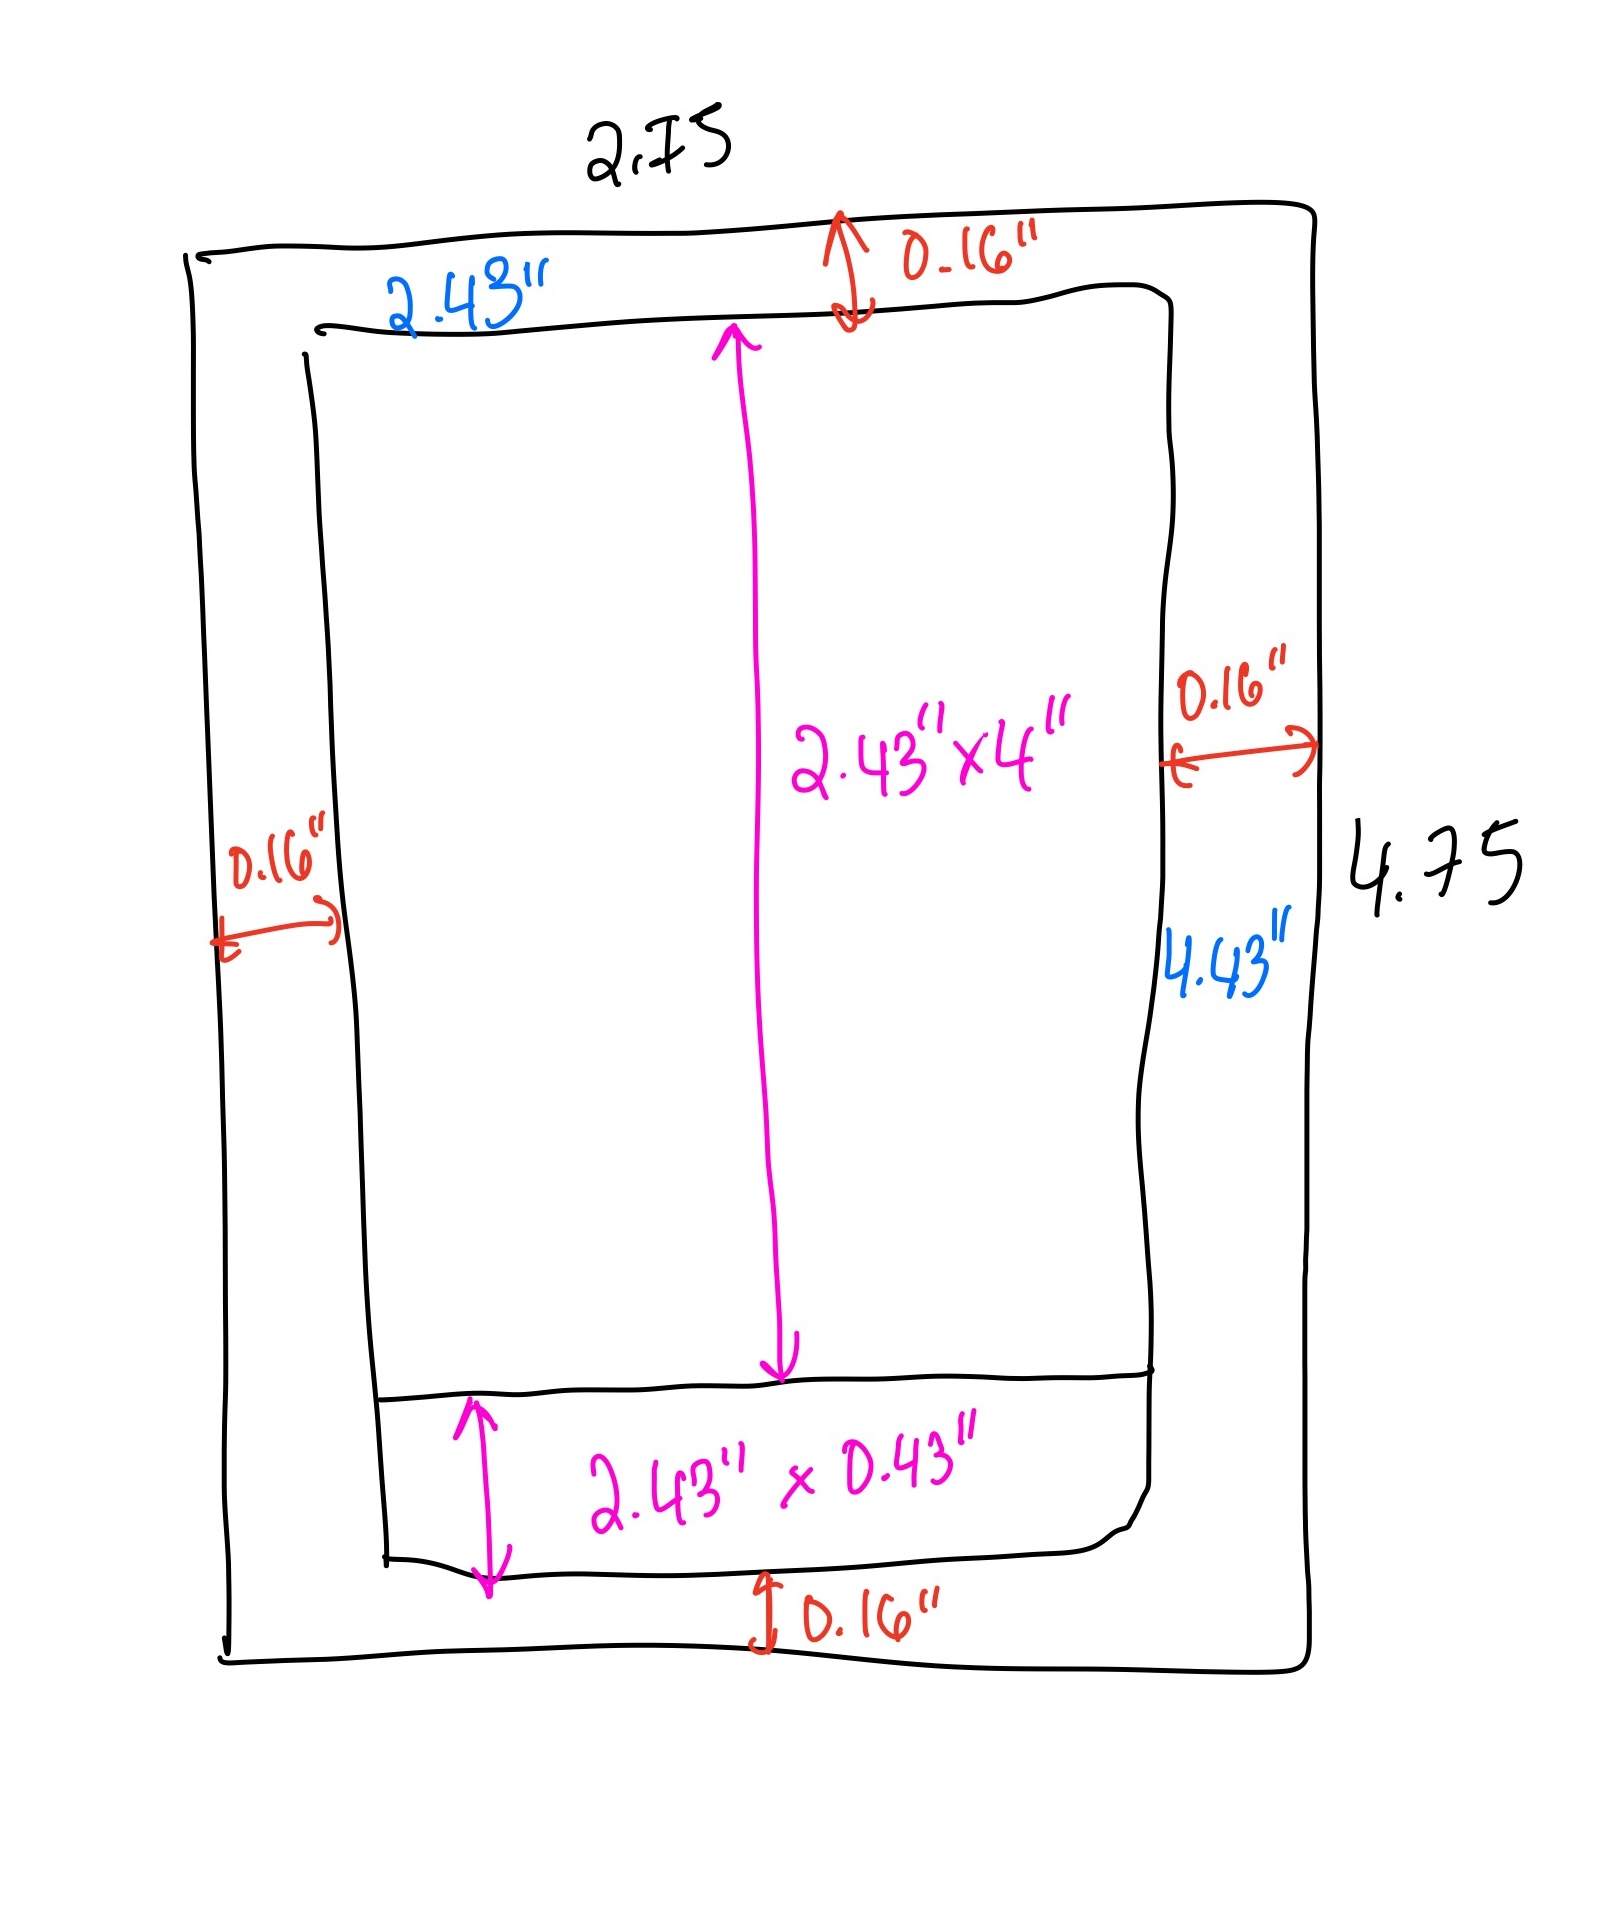 2.75
0.16"
2.43"
2.43" x 4"
0.16"
0.16"
4.75
4.43"
2.43" x 0.43"
0.16"